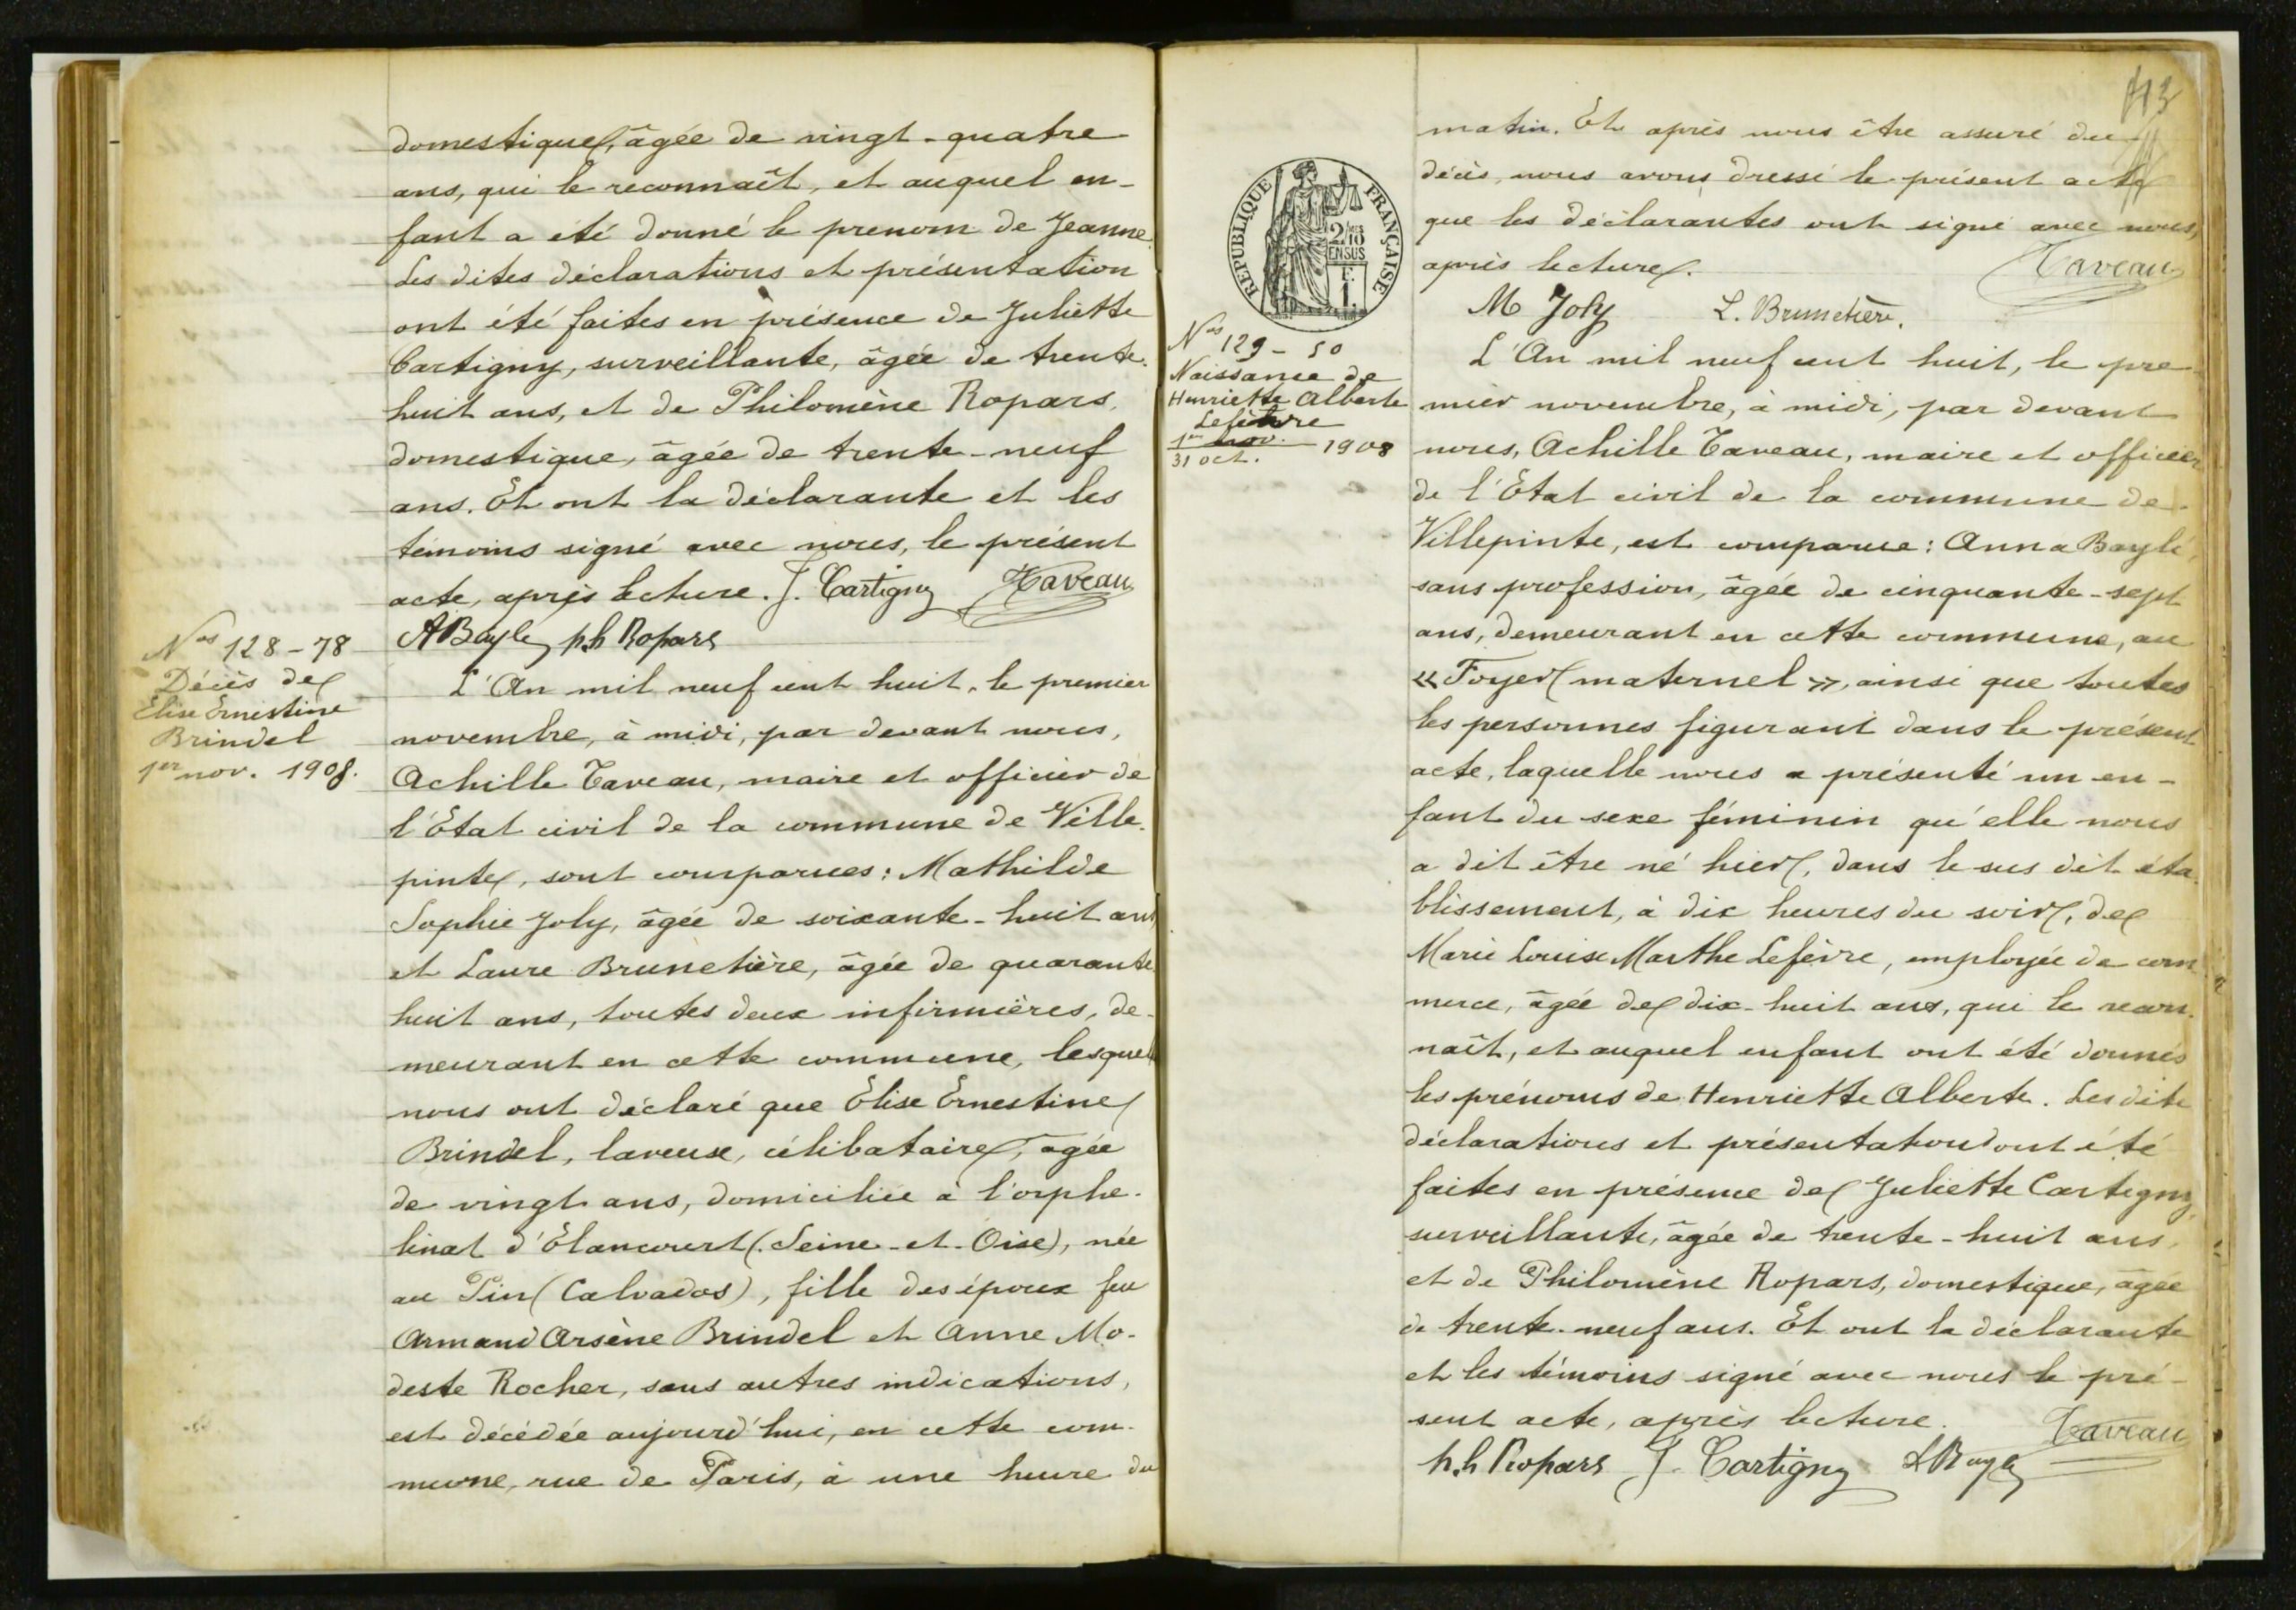 domestique, âgée de vingt-quatre
ans, qui le reconnaît, et auquel en-
fant a été donné le prenom de Jeanne.
Les dites déclarations et présentation
ont été faites en présence de Juliette
Cartigny, surveillante, âgée de trente-
huit ans, et de Philomène Ropars,
domestique, âgée de trente-neuf
ans. Et ont la déclarante et les
témoins signé avec nous, le présent
acte, après lecture. J. Cartigny Taveau
ABayle ph Ropars
Nos 128-78
Décès de
Elise Ernestine
Brindel
1er nov. 1908.
L'An mil neuf cent huit, le premier
novembre, à midi, par devant nous,
Achille Taveau, maire et officier de
l'Etat civil de la commune de Ville-
pinte, sont comparues: Mathilde
Sophie Joly, âgée de soixante-huit ans
et Laure Brunetière, âgée de quarante
huit ans, toutes deux infirmières, de-
meurant en cette commune, lesquel
nous ont déclaré que Elise Ernestine
Brindel, laveuse, célibataire, agée
de vingt ans, domiciliée à l'orphe-
linat d'Elancourt (Seine-et-Oise), née
au Pin (Calvados), fille des époux feu
Armand Arsène Brindel et Anne Mo-
deste Rocher, sans autres indications,
est décédée aujourd'hui, en cette com-
mune, rue de Paris, à une heure du
113
matin. Et après nous être assuré du
décès, nous avons dressé le présent acte
que les déclarantes ont signé avec nous,
après lecture. Taveau
M Joly L. Brunetière.
RÉPUBLIQUE FRANÇAISE
2/10
EN SUS
F.
1.
Nos 129-50
Naissance de
Henriette Alberte
Lefèvre
1er nov. 1908
31 oct.
L'An mil neuf cent huit, le pre-
mier novembre, à midi, par devant
nous, Achille Taveau, maire et officier
de l'Etat civil de la commune de
Villepinte, est comparue: Anna Baylé,
sans profession, âgée de cinquante-sept
ans, demeurant en cette commune, au
« Foyer maternel », ainsi que toutes
les personnes figurant dans le présent
acte, laquelle nous a présenté un en-
fant du sexe féminin qu'elle nous
a dit être né hier, dans le sus dit éta-
blissement, à dix heures du soir, de
Marie Louise Marthe Lefèvre, employée de com
merce, âgée de dix-huit ans, qui le recon-
naît, et auquel enfant ont été donnés
les prénoms de Henriette Alberte. Les dite
déclarations et présentation ont été
faites en présence de Juliette Cartigny,
surveillante, âgée de trente-huit ans,
et de Philomène Ropars, domestique, âgée
de trente-neuf ans. Et ont la déclarante
et les témoins signé avec nous le pré-
sent acte, après lecture. Taveau
ph Ropars J. Cartigny ABayle